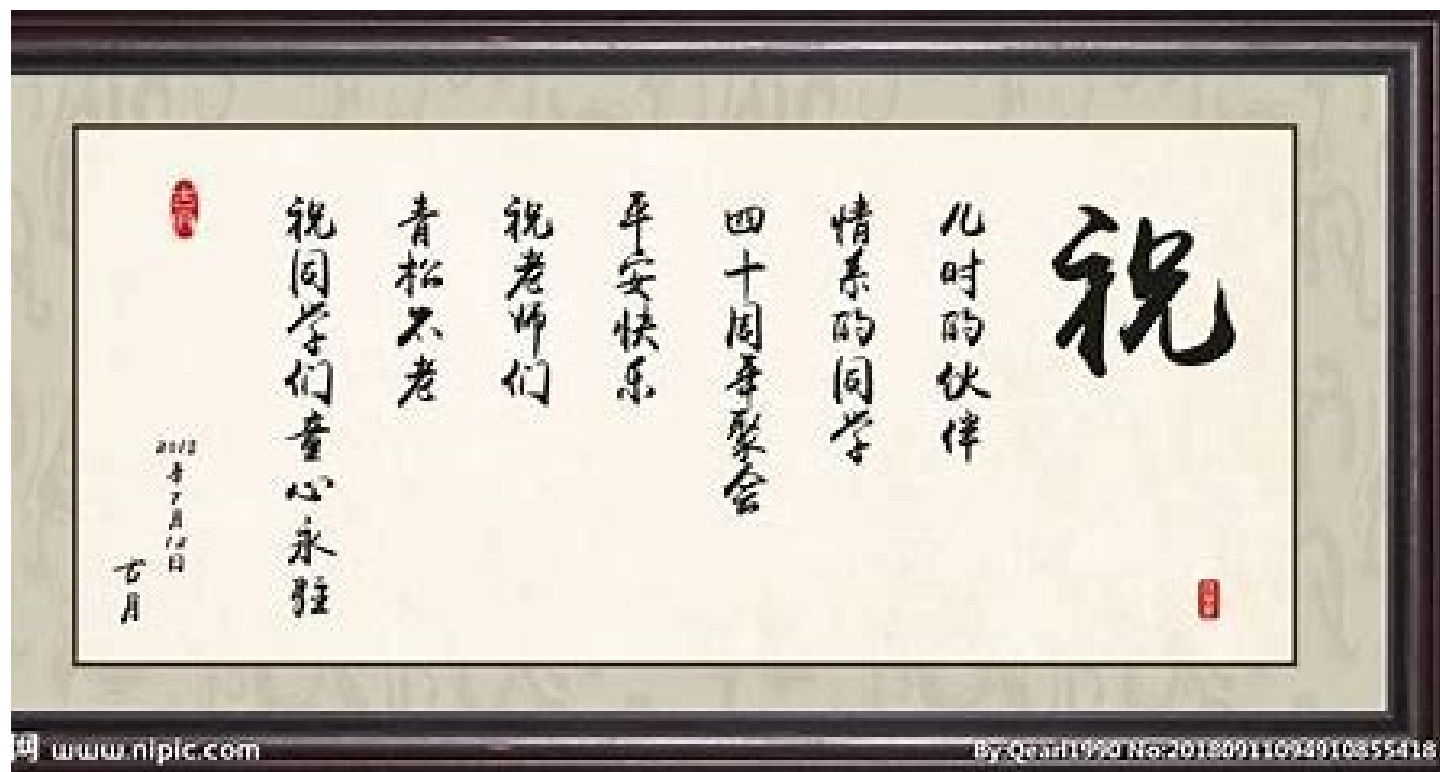 祝
儿时的伙伴
情系的同学
四十周年聚会
平安快乐
祝老师们
青松不老
祝同学们童心永驻
年7月18日
古月
网 www.nipic.com
By:Qearl1990 No:20180911094910855418